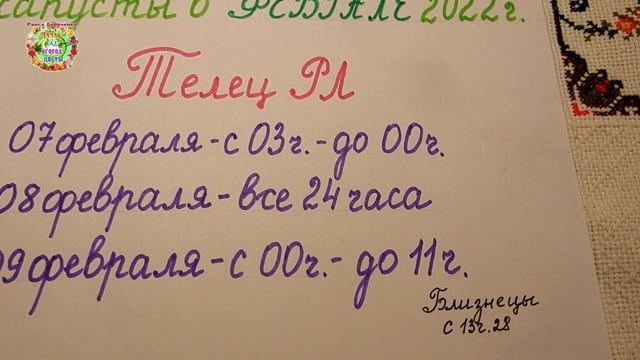 капусты в ФЕВРАЛЕ 2022г.
Телец РЛ
07 февраля - с 03ч. - до 00ч.
08 февраля - все 24 часа
09 февраля - с 00ч. - до 11ч.
Близнецы
с 13ч.28